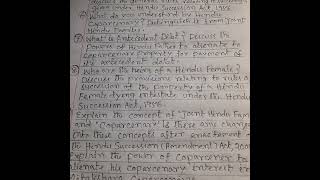 discuss the general rules relating to
under Hindu Succession Act, 1956.
What do you understand by Hindu
Coparcenary? Distinguish it from Joint
Hindu Family.
What is Antecedent Debt? Discuss the
Powers of Hindu Father to alienate the
coparcenary Property for payment of
its antecedent debt.
Who are the heirs of a Hindu Female?
Discuss the provisions relating to rules of
succession of the Property of a Hindu
Female dying intestate under the Hindu
Succession Act, 1956.
Explain the concept of "Joint Hindu Fam
and "Coparcenary" Is there any change
into these concepts after enactment of
the Hindu Succession (Amendment) Act, 200
Explain the power of Coparcener to
alienate his coparcenary interest in